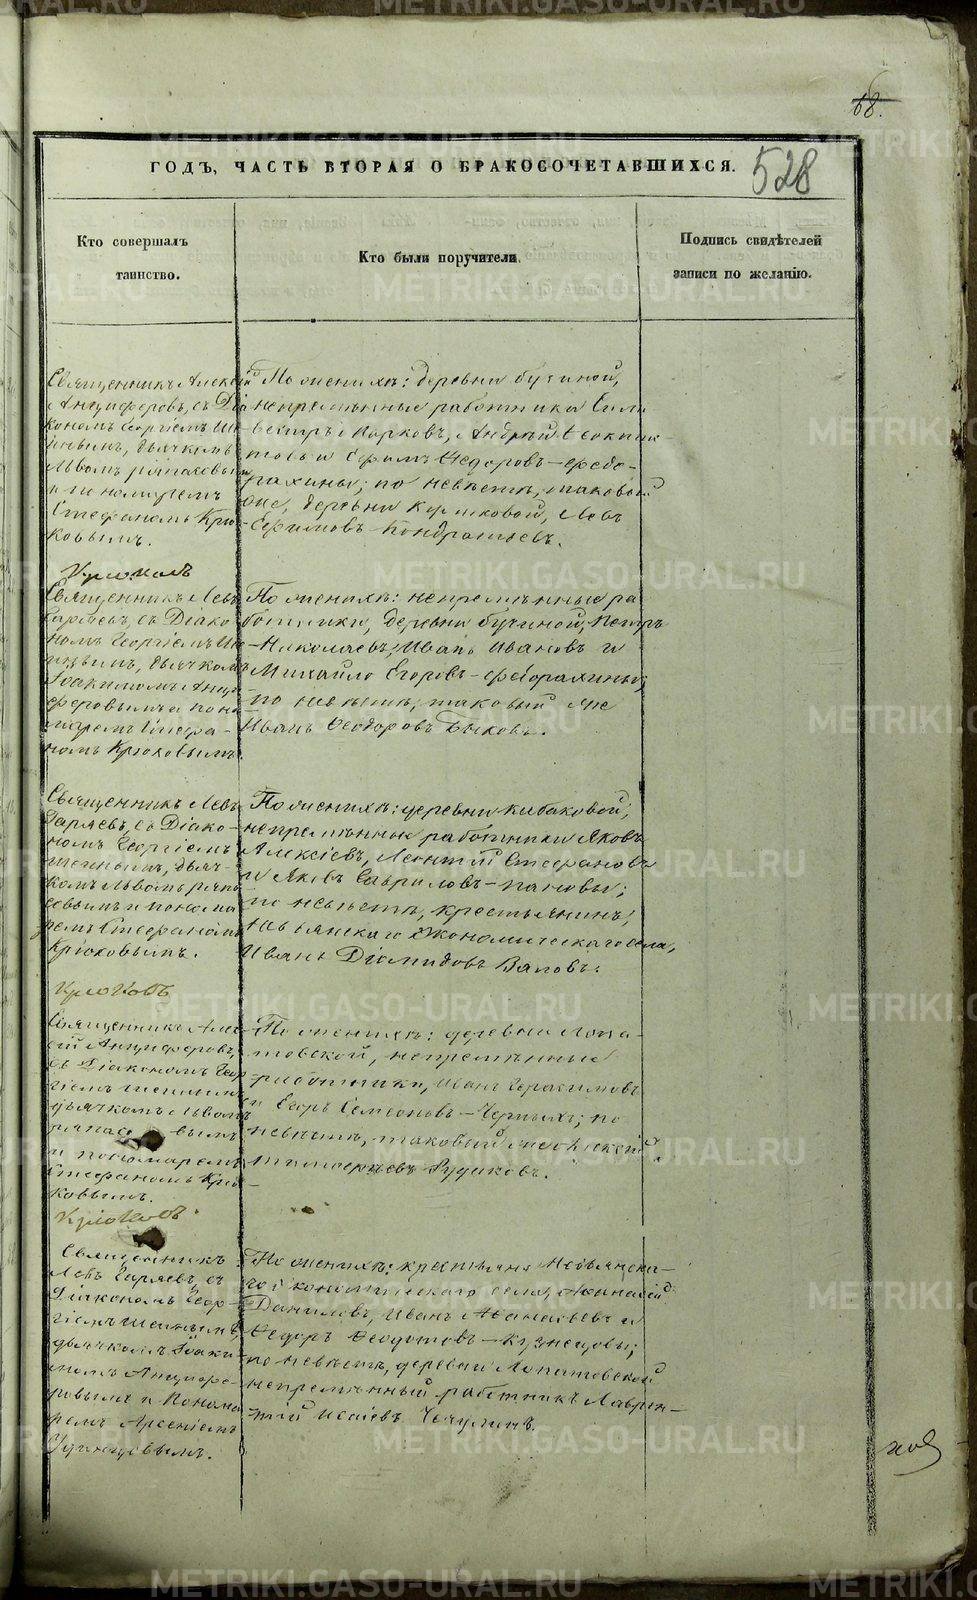 68.
ГОДЪ, ЧАСТЬ ВТОРАЯ О БРАКОСОЧЕТАВШИХСЯ.
528
Кто совершалъ
таинство.
Кто были поручители.
Подпись свидѣтелей
записи по желанію.
Священникъ Алексѣй
Анциферовъ, съ Діа
кономъ Георгіемъ
дьячкомъ
Львомъ
и пономаремъ
Стефаномъ Крю
ковымъ.
По женихѣ: деревни бучиной,
непремѣнные работники Сили
вестръ Марковъ, Андрей
и Ефимъ Федоровъ
по невѣстѣ, таковой
же, деревни Корелковой, Левъ
Ефимовъ Кондратьевъ.
Крюковъ
Священникъ Левъ
Гаряевъ, съ Діако
номъ Георгіемъ
дьячкомъ
Іоакимомъ Анци
феровымъ и поно
маремъ Стефа-
номъ Крюковымъ.
По женихѣ: непремѣнные ра
ботники, деревни бучиной, Петръ
Николаевъ, Иванъ Ивановъ и
Михайло Егоровъ
по невѣстѣ, таковый же
Иванъ Феодоровъ Быковъ.
Священникъ Левъ
Гаряевъ, съ Діако-
номъ Георгіемъ
дьяч-
комъ Львомъ
и понома
ремъ Стефаномъ
Крюковымъ.
По женихѣ: деревни Кибаковой,
непремѣнные работники Яковъ
Алексѣевъ, Леонтій Стефановъ
и Яковъ Гавриловъ
по невѣстѣ, крестьянинъ
Невьянскаго Экономическаго села,
Иванъ Діомидовъ Вяловъ.
Крюковъ
Священникъ Алек
сѣй Анциферовъ,
съ Діакономъ Геор
гіемъ
дьячкомъ Львомъ
и пономаремъ
Стефаномъ Крю
ковымъ.
По женихѣ: деревни Лопа-
товской, непремѣнные
работники, Иванъ Герасимовъ
и Егоръ Семеоновъ Черныхъ; по
невѣстѣ, таковый же
Тимофеевъ Рудаковъ.
Крюковъ.
Священникъ
Левъ Гаряевъ, съ
Діакономъ Геор-
гіемъ
дьячкомъ Іоаки-
момъ Анцифе-
ровымъ и Понома
ремъ Арсеніемъ
Удинцовымъ.
По женихѣ: крестьяне Невьянска-
го Економическаго села, Афанасій
Даниловъ, Иванъ Афанасьевъ и
Федоръ Феодотовъ Кузнецовы;
по невѣстѣ, деревни Лопатовской
непремѣнный работникъ Лаврен-
тій Исаіевъ Чечулинъ.
METRIKI.GASO-URAL.RU